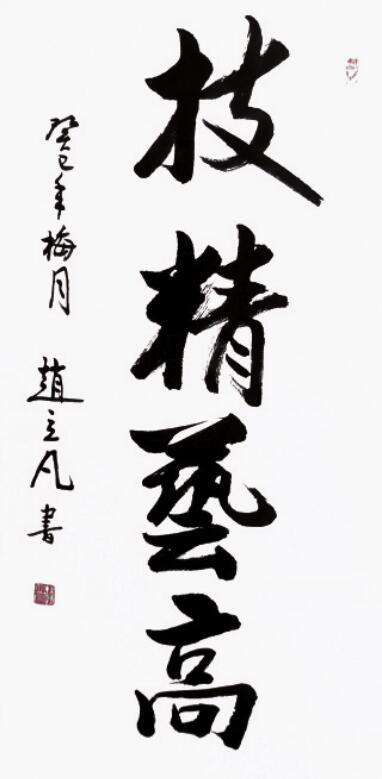 技精藝高
癸巳年梅月 趙立凡書